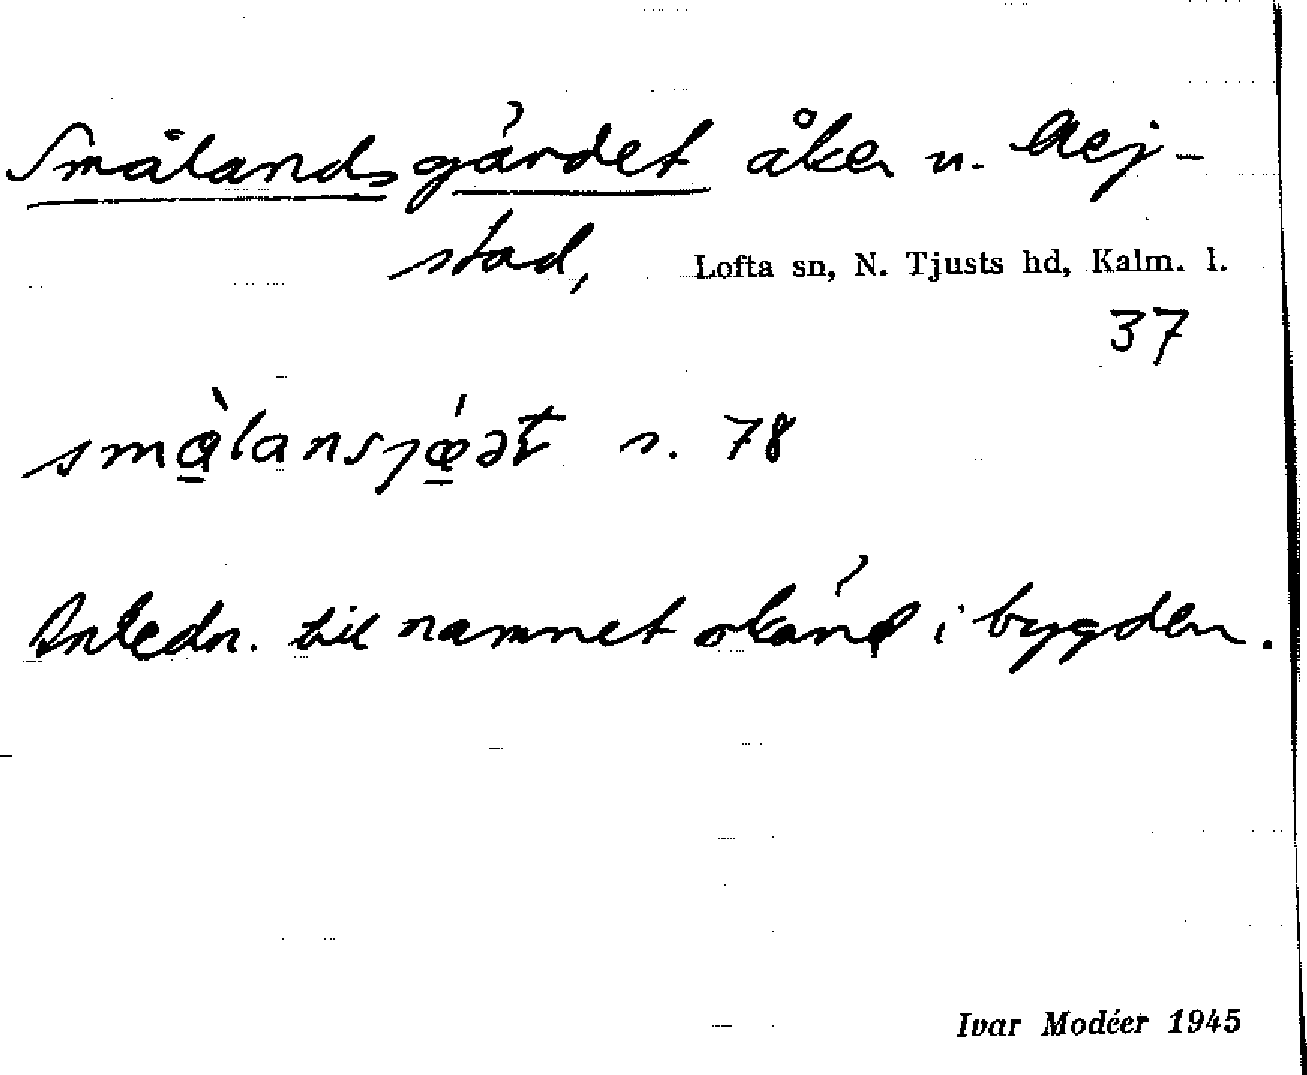 Smålandsgärdet åker u. Hej-
stad, Lofta sn, N. Tjusts hd, Kalm. l.
37
smålansjæ̀ət s. 78
Anledn. till namnet okänd i bygden.
Ivar Modéer 1945